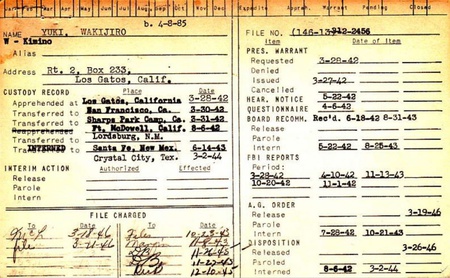 Jan Feb Mar Apr May Jun July Aug Sept Oct Nov Dec
Expedite Apprem. Warrant Pending Closed
b. 4-8-85
NAME YUKI, WAKIJIRO
W - Kimino
Alias
Address Rt. 2, Box 233,
Los Gatos, Calif.
CUSTODY RECORD Place Date
Apprehended at Los Gatos, California 3-28-42
Transferred to San Francisco, Ca. 3-30-42
Transferred to Sharps Park Camp, Ca. 3-31-42
Reapprehended Ft. McDowell, Calif. 8-6-42
Transferred to Lordsburg, N.M.
INTERNED Santa Fe, New Mex. 6-14-43
Crystal City, Tex. 3-2-44
INTERIM ACTION Authorized Effected
Release
Parole
Intern
FILE CHARGED
To Date To Date
Files 10-23-43
file 3-21-46 11-8-43
11-26-43
11-27-43
12-10-43
FILE NO. (146-13-2-12-2456
PRES. WARRANT Item Date of Item
Requested 3-28-42
Denied
Issued 3-27-42
Cancelled
HEAR. NOTICE 5-22-42
QUESTIONNAIRE 4-6-42
BOARD RECOMM. Rec'd. 6-18-42 8-31-43
Release
Parole
Intern 5-22-42 8-25-43
FBI REPORTS
Period:
3-28-42 4-10-42 11-13-43
10-20-42 11-1-42
A.G. ORDER
Release 3-19-46
Parole
Intern 7-28-42 10-21-43
DISPOSITION
Released 3-26-46
Paroled
Interned 8-6-42 3-2-44